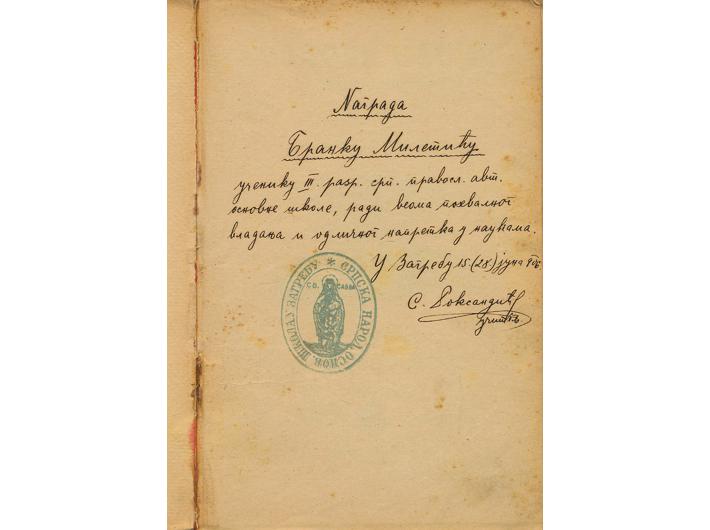 Награда
Бранку Милетићу
ученику III. разр. срп. правосл. авт.
основне школе, ради веома похвалног
владања и одличног напретка у наукама.
У Загребу 15 (28) јуна
С. Роксандић
учитељ
СРПСКА НАРОД. ОСНОВ. ШКОЛА У ЗАГРЕБУ *
СВ. САВА